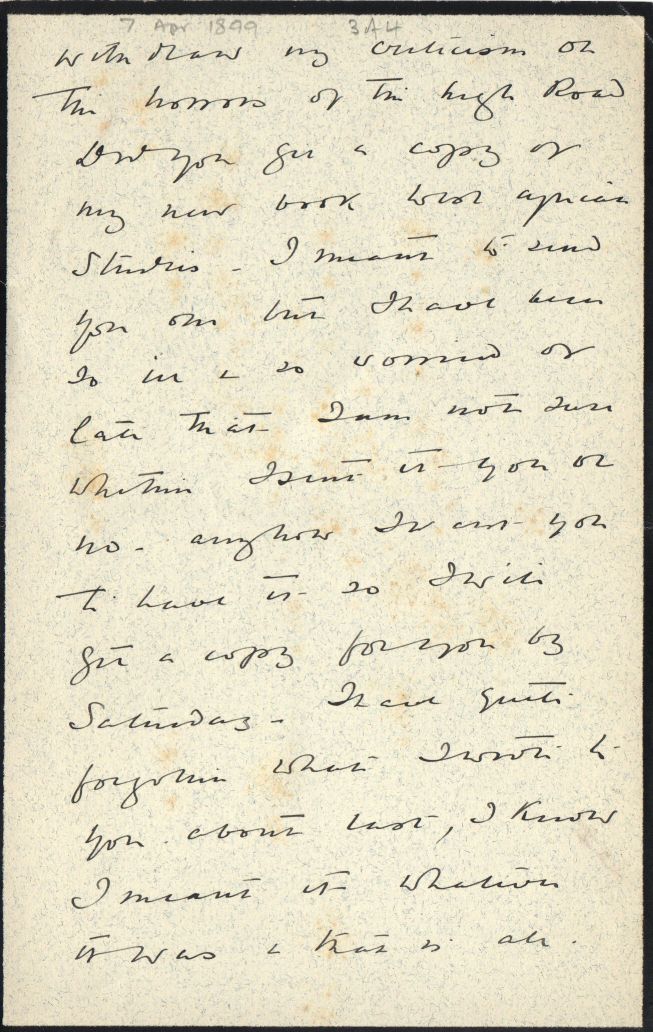 7 Apr 1899 3A4
withdraw my criticism on
the horrors of the high Road
Did you get a copy of
my new book West african
Studies - I meant to send
you one but I have been
so ill & so worried of
late that I am not sure
whether I sent it you or
no - anyhow I want you
to have it so I will
get a copy for you by
Saturday - I have quite
forgotten what I wrote to
you about last, I know
I meant it whatever
it was & that is all.